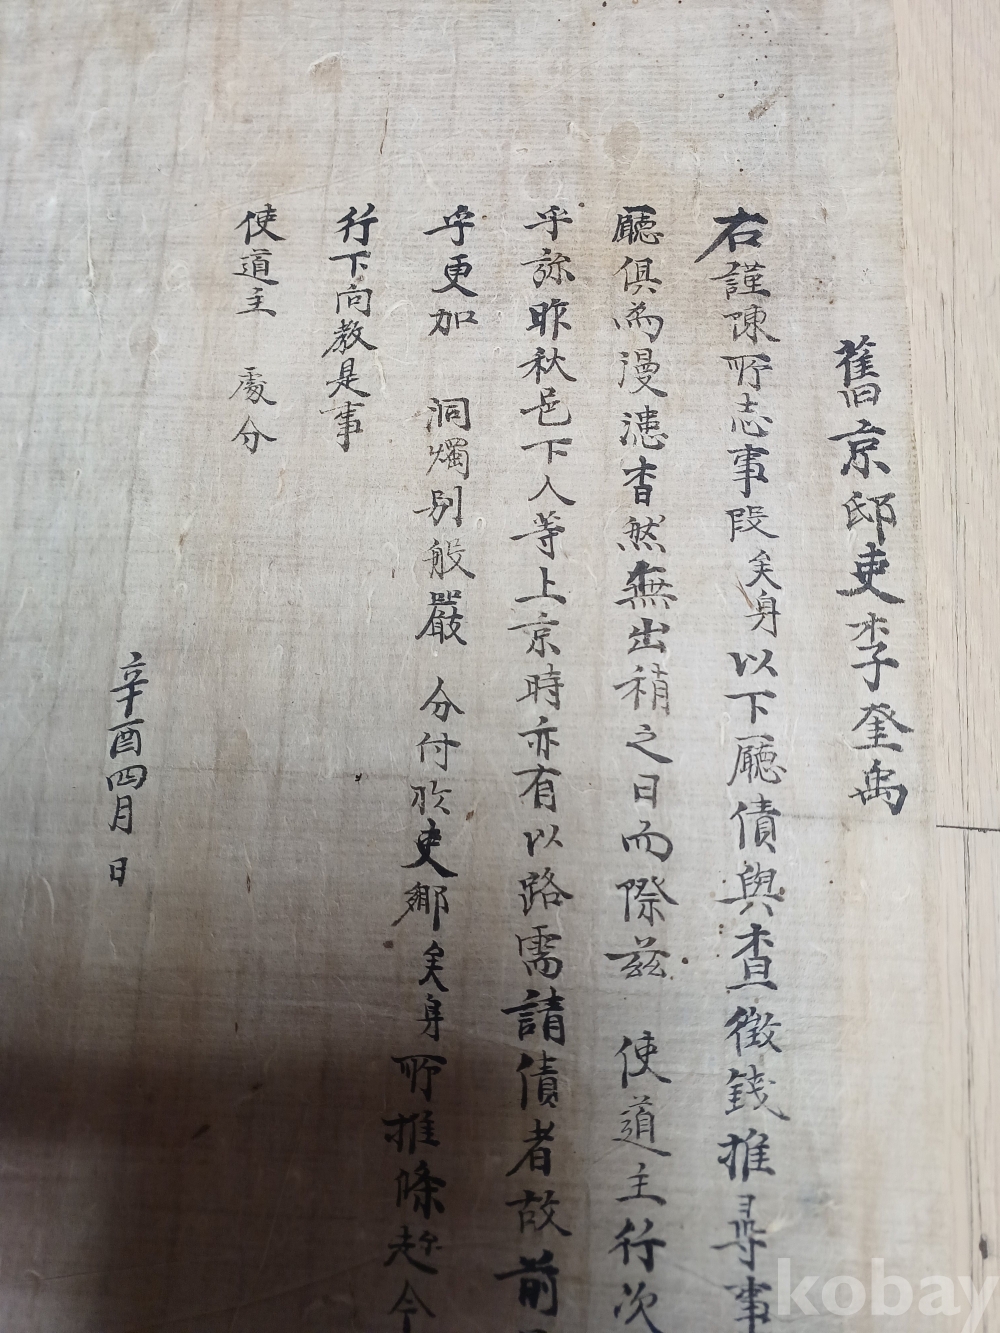 舊京邸吏李奎禹
右謹陳所志事段矣身以下廳債與查徵錢推尋事
廳俱爲漫漶杳然無出梢之日而際玆 使道主行次
乎旀昨秋邑下人等上京時亦有以路需請債者故前
乎更加 洞燭別般嚴 分付於吏鄕矣身所推條趁今
行下向教是事
使道主 處分
辛酉四月 日
kobay